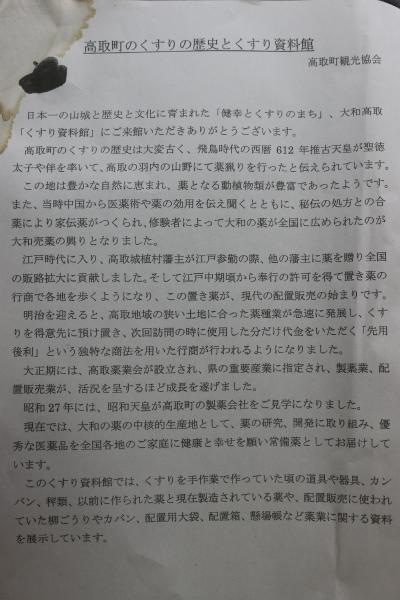 高取町のくすりの歴史とくすり資料館
高取町観光協会
日本一の山城と歴史と文化に育まれた「健幸とくすりのまち」、大和高取
「くすり資料館」にご来館いただきありがとうございます。
高取町のくすりの歴史は大変古く、飛鳥時代の西暦 612 年推古天皇が聖徳
太子や伴を率いて、高取の羽内の山野にて薬猟りを行ったと伝えられています。
この地は豊かな自然に恵まれ、薬となる動植物類が豊富であったようです。
また、当時中国から医薬術や薬の効用を伝え聞くとともに、秘伝の処方との合
薬により家伝薬がつくられ、修験者によって大和の薬が全国に広められたのが
大和売薬の興りとなりました。
江戸時代に入り、高取城植村藩主が江戸参勤の際、他の藩主に薬を贈り全国
の販路拡大に貢献しました。そして江戸中期頃から奉行の許可を得て置き薬の
行商で各地を歩くようになり、この置き薬が、現代の配置販売の始まりです。
明治を迎えると、高取地域の狭い土地に合った薬種業が急速に発展し、くす
りを得意先に預け置き、次回訪問の時に使用した分だけ代金をいただく「先用
後利」という独特な商法を用いた行商が行われるようになりました。
大正期には、高取薬業会が設立され、県の重要産業に指定され、製薬業、配
置販売業が、活況を呈するほど成長を遂げました。
昭和 27 年には、昭和天皇が高取町の製薬会社をご見学になりました。
現在では、大和の薬の中核的生産地として、薬の研究、開発に取り組み、優
秀な医薬品を全国各地のご家庭に健康と幸せを願い常備薬としてお届けして
います。
このくすり資料館では、くすりを手作業で作っていた頃の道具や器具、カン
バン、秤類、以前に作られた薬と現在製造されている薬や、配置販売に使われ
ていた柳ごうりやカバン、配置用大袋、配置箱、懸場帳など薬業に関する資料
を展示しています。